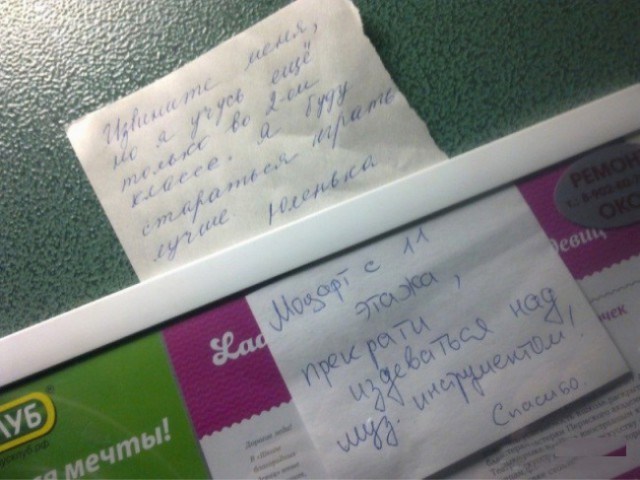 Извините меня,
но я учусь ещё
только во 2-ом
классе. Я буду
стараться играть
лучше Юленька
РЕМОН
ОКО
Моцарт с 11
этажа,
прекрати
издеваться над
муз. инструментом!
Спасибо.
девиц
чек
Lad
УБ
я мечты!
Дорогие леди!